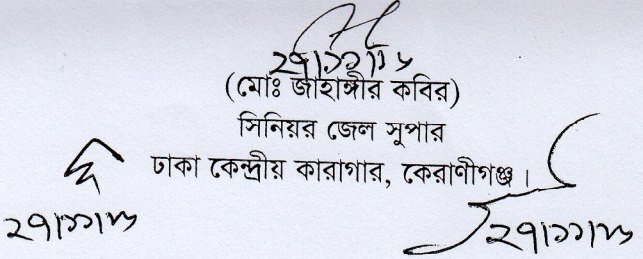 ২৭/১১/১৮
(মোঃ জাহাঙ্গীর কবির)
সিনিয়র জেল সুপার
ঢাকা কেন্দ্রীয় কারাগার, কেরাণীগঞ্জ।
২৭/১১/১৮
২৭/১১/১৮